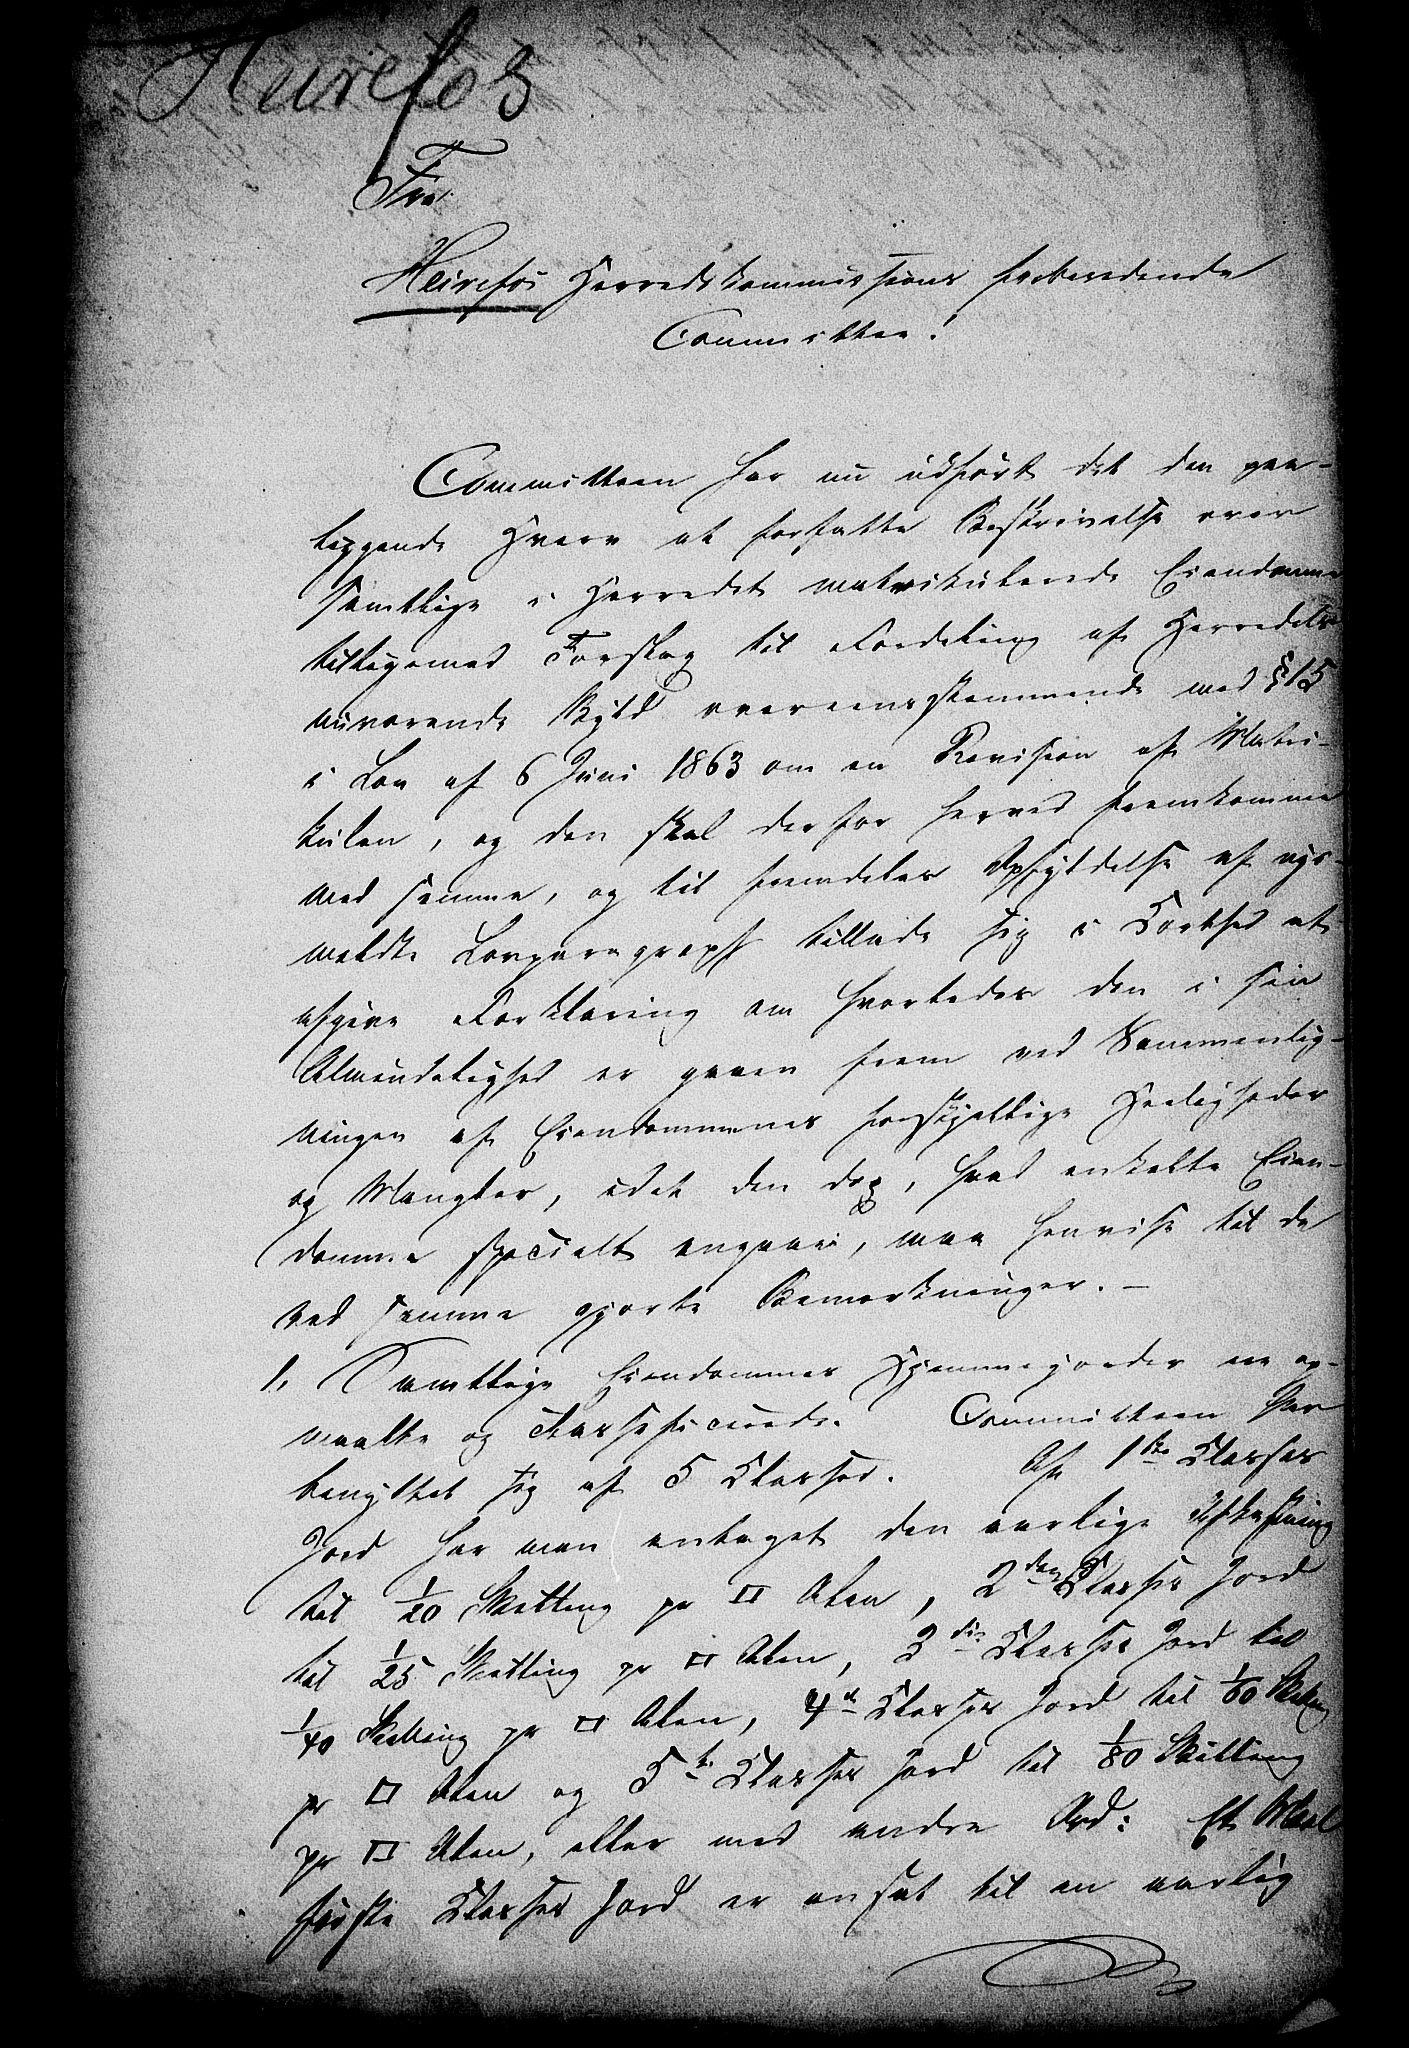 Heirefos
Fra
Heirefos Herredskommissions forberedende
Committee!
Committeen har nu udført det den paa-
liggende Hverv at forfatte Beskrivelse over
samtlige i Herredet matrikulerede Eiendomme
tilligemed Forslag til Fordeling af Herredets
nuværende Skyld overeensstemmende med § 15
i Lov af 6 Juni 1863 om en Revision af Matri-
kulen, og den skal derfor herved fremkomme
med samme, og til fremdeles Opfyldelse af nys-
meldte Lovparagraph tillade sig i Korthed at
afgive Forklaring om hvorledes den i sin
Almindelighed er gaaen frem ved Sammenlig-
ningen af Eiendommenes forskjellige Herligheder
og Mangler, idet den dog, hvad enkelte Eien-
domme specielt angaaer, maa henvise til de
ved samme gjorte Bemærkninger. —
1, Samtlige Eiendommes Hjemmejorder ere op-
maalte og classificerede. Committeen har
benyttet sig af 5 Classer. Af 1ste Classes
Jord har man antaget den aarlige Afkastning
til 1/20 Skilling pr □ Alen, 2den Classes Jord
til 1/25 Skilling pr □ Alen, 3die Classes Jord til
1/40 Skilling pr □ Alen, 4d Classes Jord til 1/60 Skilling
pr □ Alen og 5te Classes Jord til 1/80 Skilling
pr □ Alen, eller med andre Ord: Et Maal
første Classes Jord er ansat til en aarlig